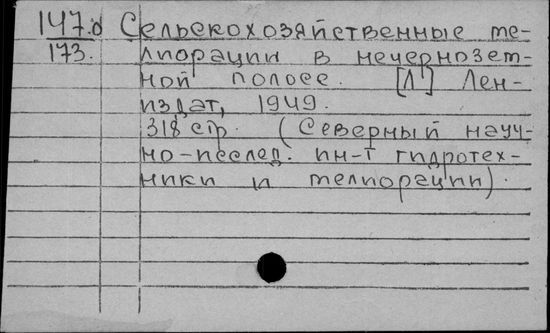 147.д Сельскохозяйственные ме-
173. лиорации в нечернозем-
ной полосе. [Л] Лен-
издат, 1949.
318 стр. (Северный науч-
но-исслед. ин-т гидротех-
ники и мелиорации).